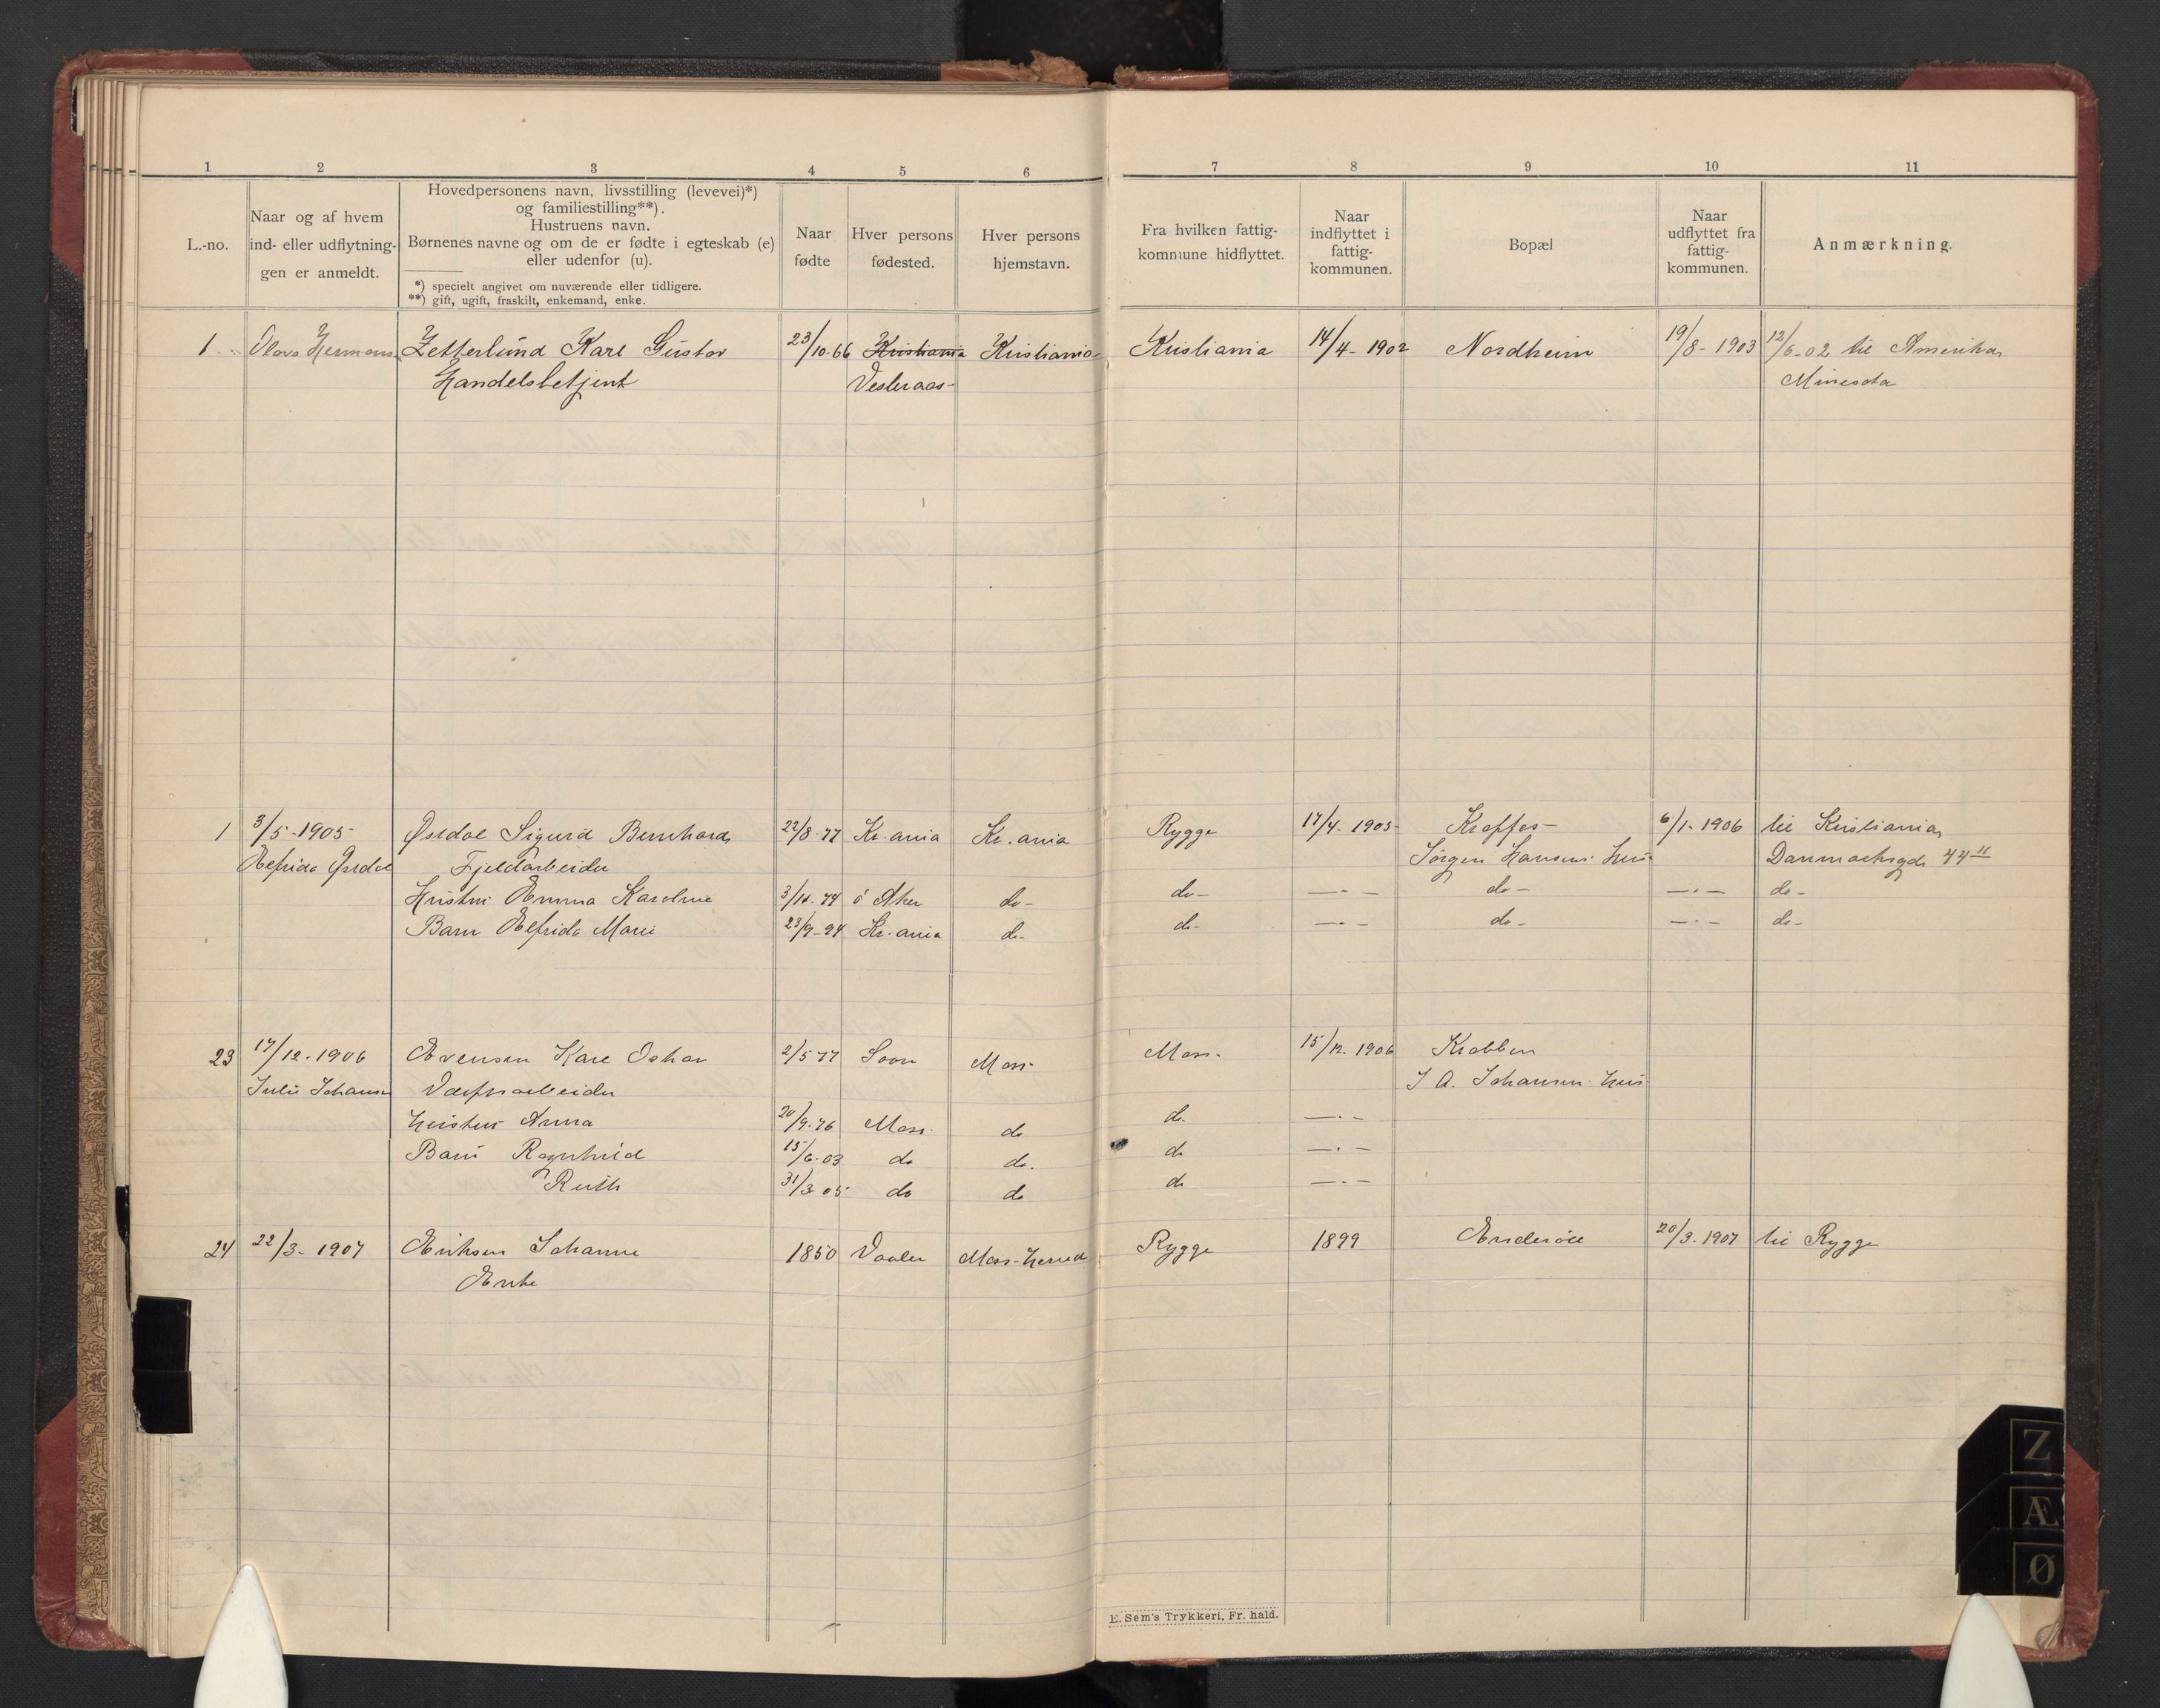 1 2 3 4 5 6 7 8 9 10 11
L.-no.
Naar og af hvem
ind- eller udflytnin-
gen er anmeldt.
Hovedpersonens navn, livsstilling (levevei)*)
og familiestilling**).
Hustruens navn.
Børnenes navne og om de er fødte i egteskab (e)
eller udenfor (u).
*) specielt angivet om nuværende eller tidligere.
**) gift, ugift, fraskilt, enkemand, enke.
Naar
fødte
Hver persons
fødested.
Hver persons
hjemstavn.
Fra hvilken fattig-
kommune hidflyttet.
Naar
indflyttet i
fattig-
kommunen.
Bopæl
Naar
udflyttet fra
fattig-
kommunen.
Anmærkning.
1 Olava Hermans Zetterlund Karl Gustav 23/10-66 Kristiania Kristiania Kristiania 14/4-1902 Nordheim 19/8-1903 12/6-02 til Amerika
Handelsbetjent Vesteraas Minesota
1 3/5-1905 Østdal Sigurd Bernhard 22/8-77 Kr.ania Kr.ania Rygge 17/4-1905 6/1-1906 til Kristiania
Elfrida Østdal Fjeldarbeider Jørgen Hansens hus Danmarksgd. 44 II
Hustru Emma Karoline Aker do- do- —·— do- —·— do-
Barn Elfrida Marie 23/9-94 Kr.ania do- do- —·— do- —·— do-
23 17/12-1906 Evensen Karl Oskar 2/5-77 Soon Moss Moss- 15/12-1906 Krabben
Julie Johansen Værftsarbeider J A. Johansens hus
Hustru Anna 20/9-76 Moss do do. —·—
Barn Ragnhild 15/6-03 do do. do —·—
Ruth 31/3 05 do do do —·—
24 22/3-1907 Eriksen Johanne 1850 Vaaler Moss-herred Rygge 1899 20/3-1907 til Rygge
Enke
E. Sem's Trykkeri, Fr. hald.
Z
Æ
Ø